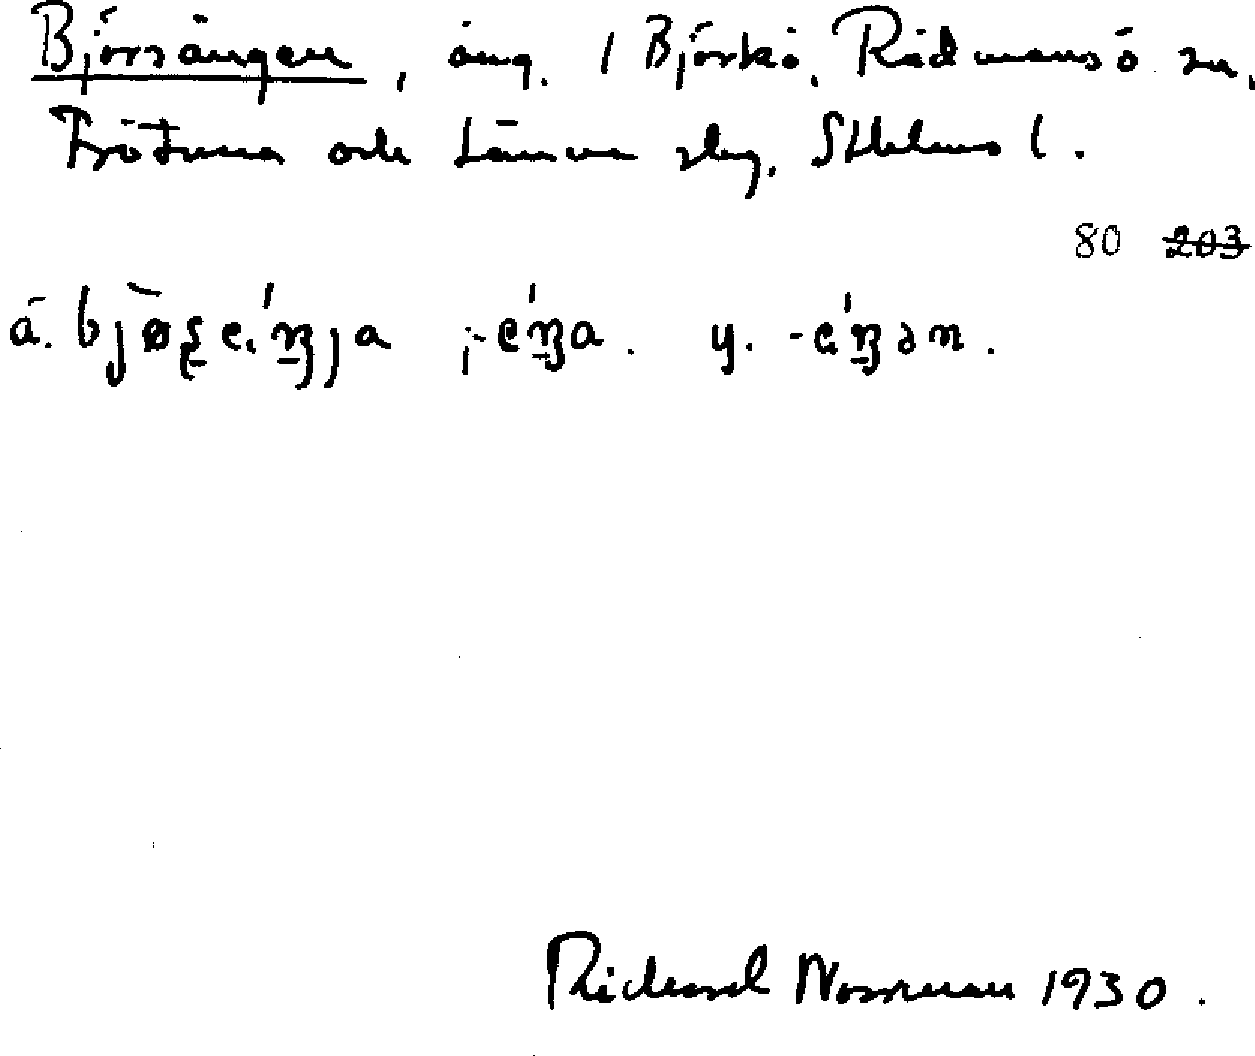 Björsängen, äng. / Björkö, Rådmansö sn,
Frötuna och Länna slg. Sthlms l.
80 203
ä. bjøʂe.ŋja ;-eŋa. y. -eŋən.
Rickard Norrman 1930.